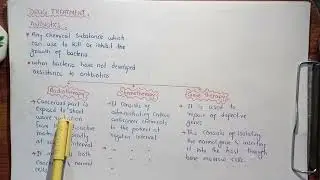 DRUG TREATMENT.
ANTIBIOTICS
• Any chemical substance which
can use to kill or inhibit the
growth of bacteria.
• When bacteria have not developed
resistance to antibiotics
Radiotherapy
• Cancerous part is
exposed to short
wave radiation
from radioactive
at regular interval
• It both
cancerous & normal
cells.
Chemotherapy
• It consists of
administrating certain
anticancer chemicals
to the patient at
regular interval
Gene therapy
• It is used to
repair of defective
genes
• This consists of isolating
the normal gene & inserting
it into the host through
bone marrow cells.